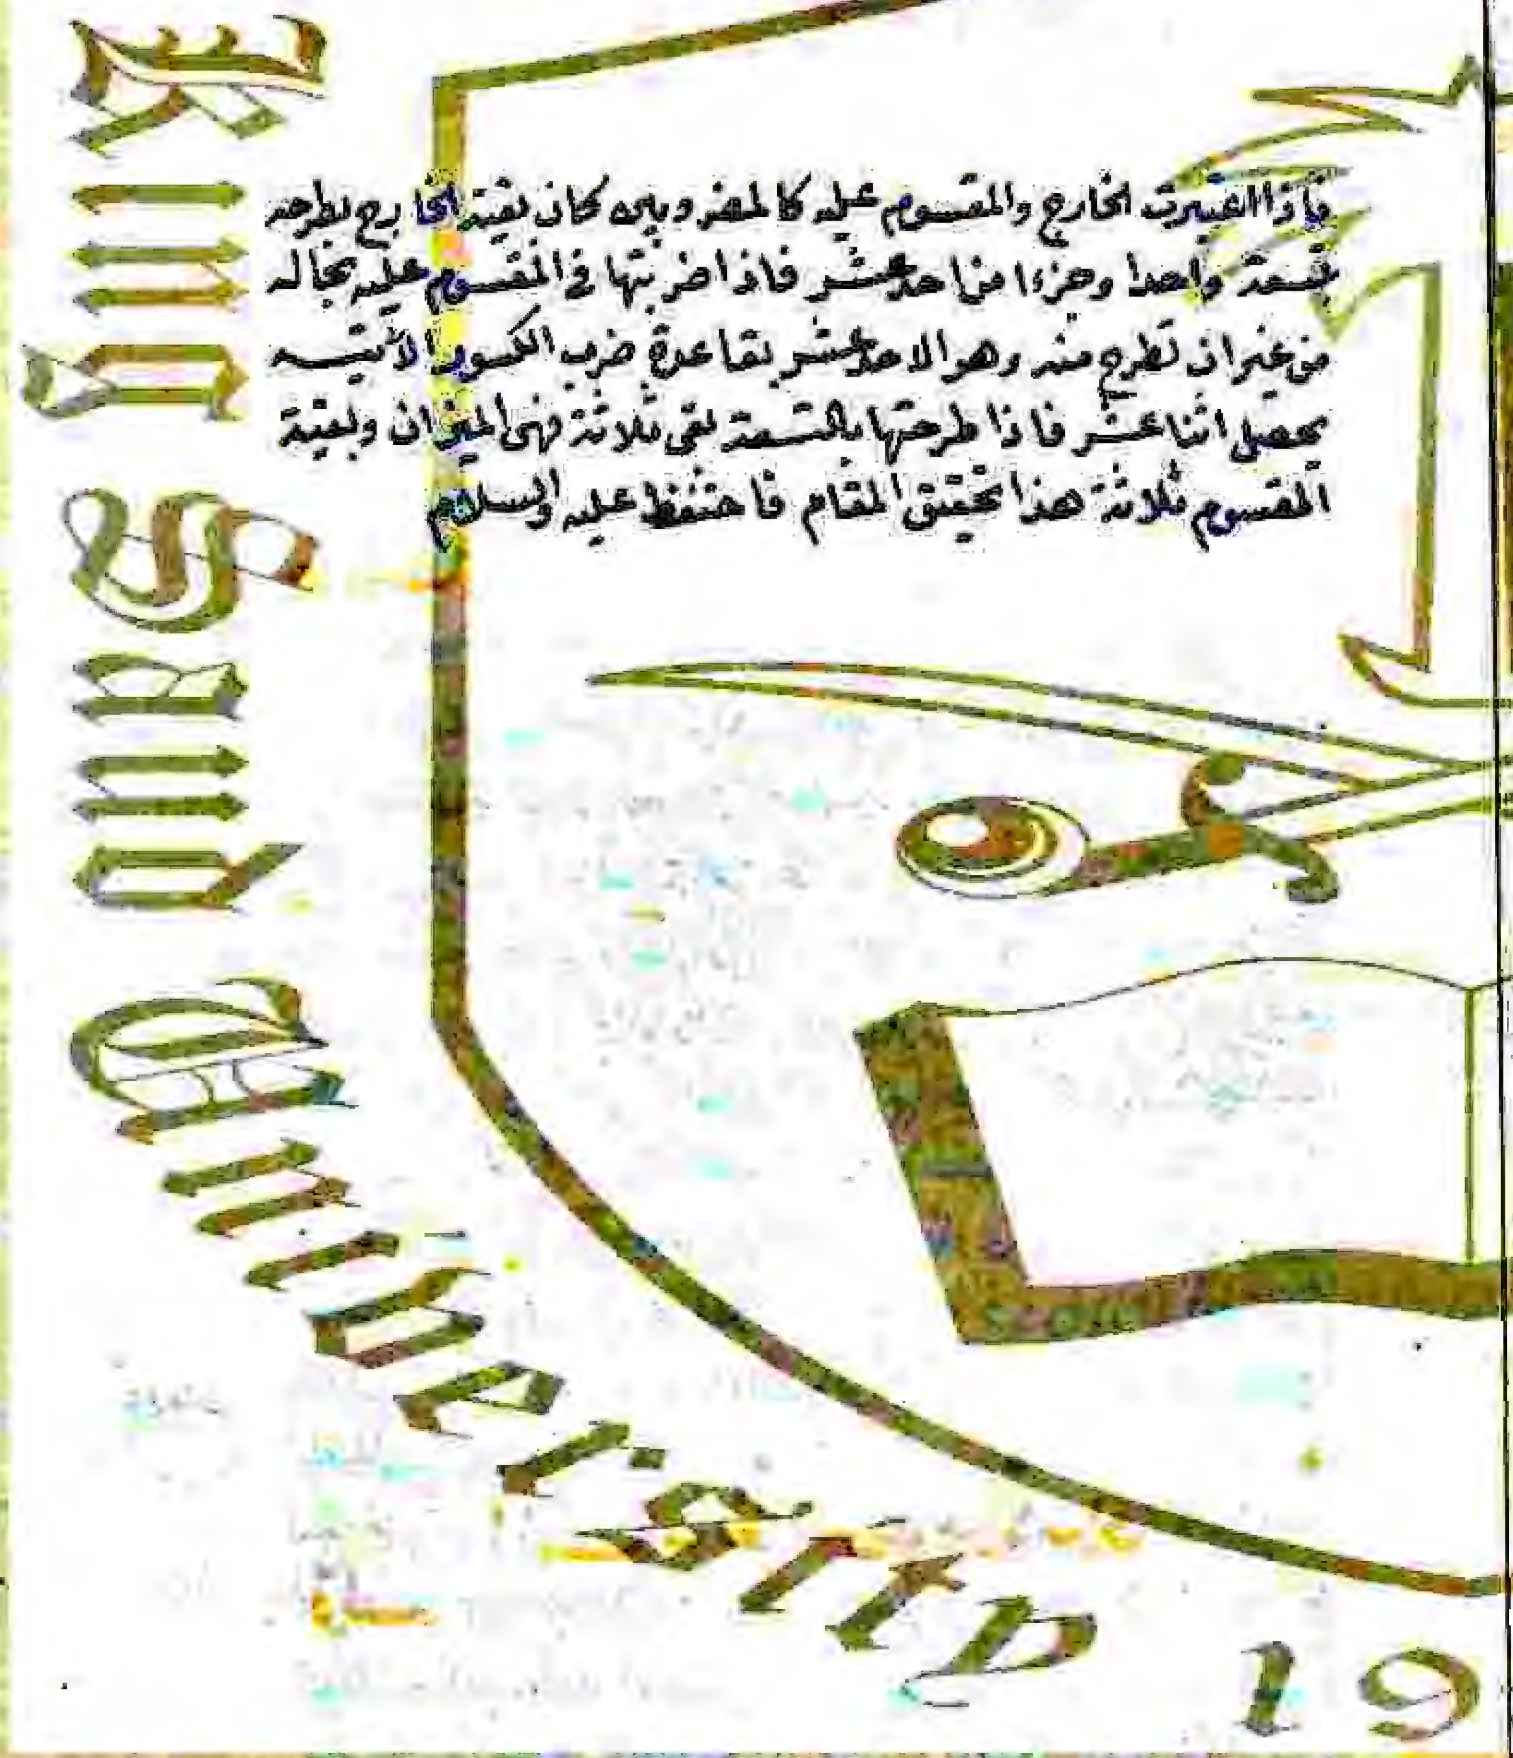 فاذا اعتبرت الخارج والمقسوم عليه كالمضروبين كان بقية الخارج بطرحه
تسعة واحدا وجزءا من احد عشر فاذا ضربتها في المقسوم عليه بحاله
من غير ان تطرح منه وهو الاحد عشر بقاعدة ضرب الكسور الاتية
يحصل اثنا عشر فاذا طرحتها بالتسعة بقى ثلاثة فهى الميزان وبقية
المقسوم ثلاثة هذا تحقيق المقام فاحتفظ عليه والسلام
King Saud University